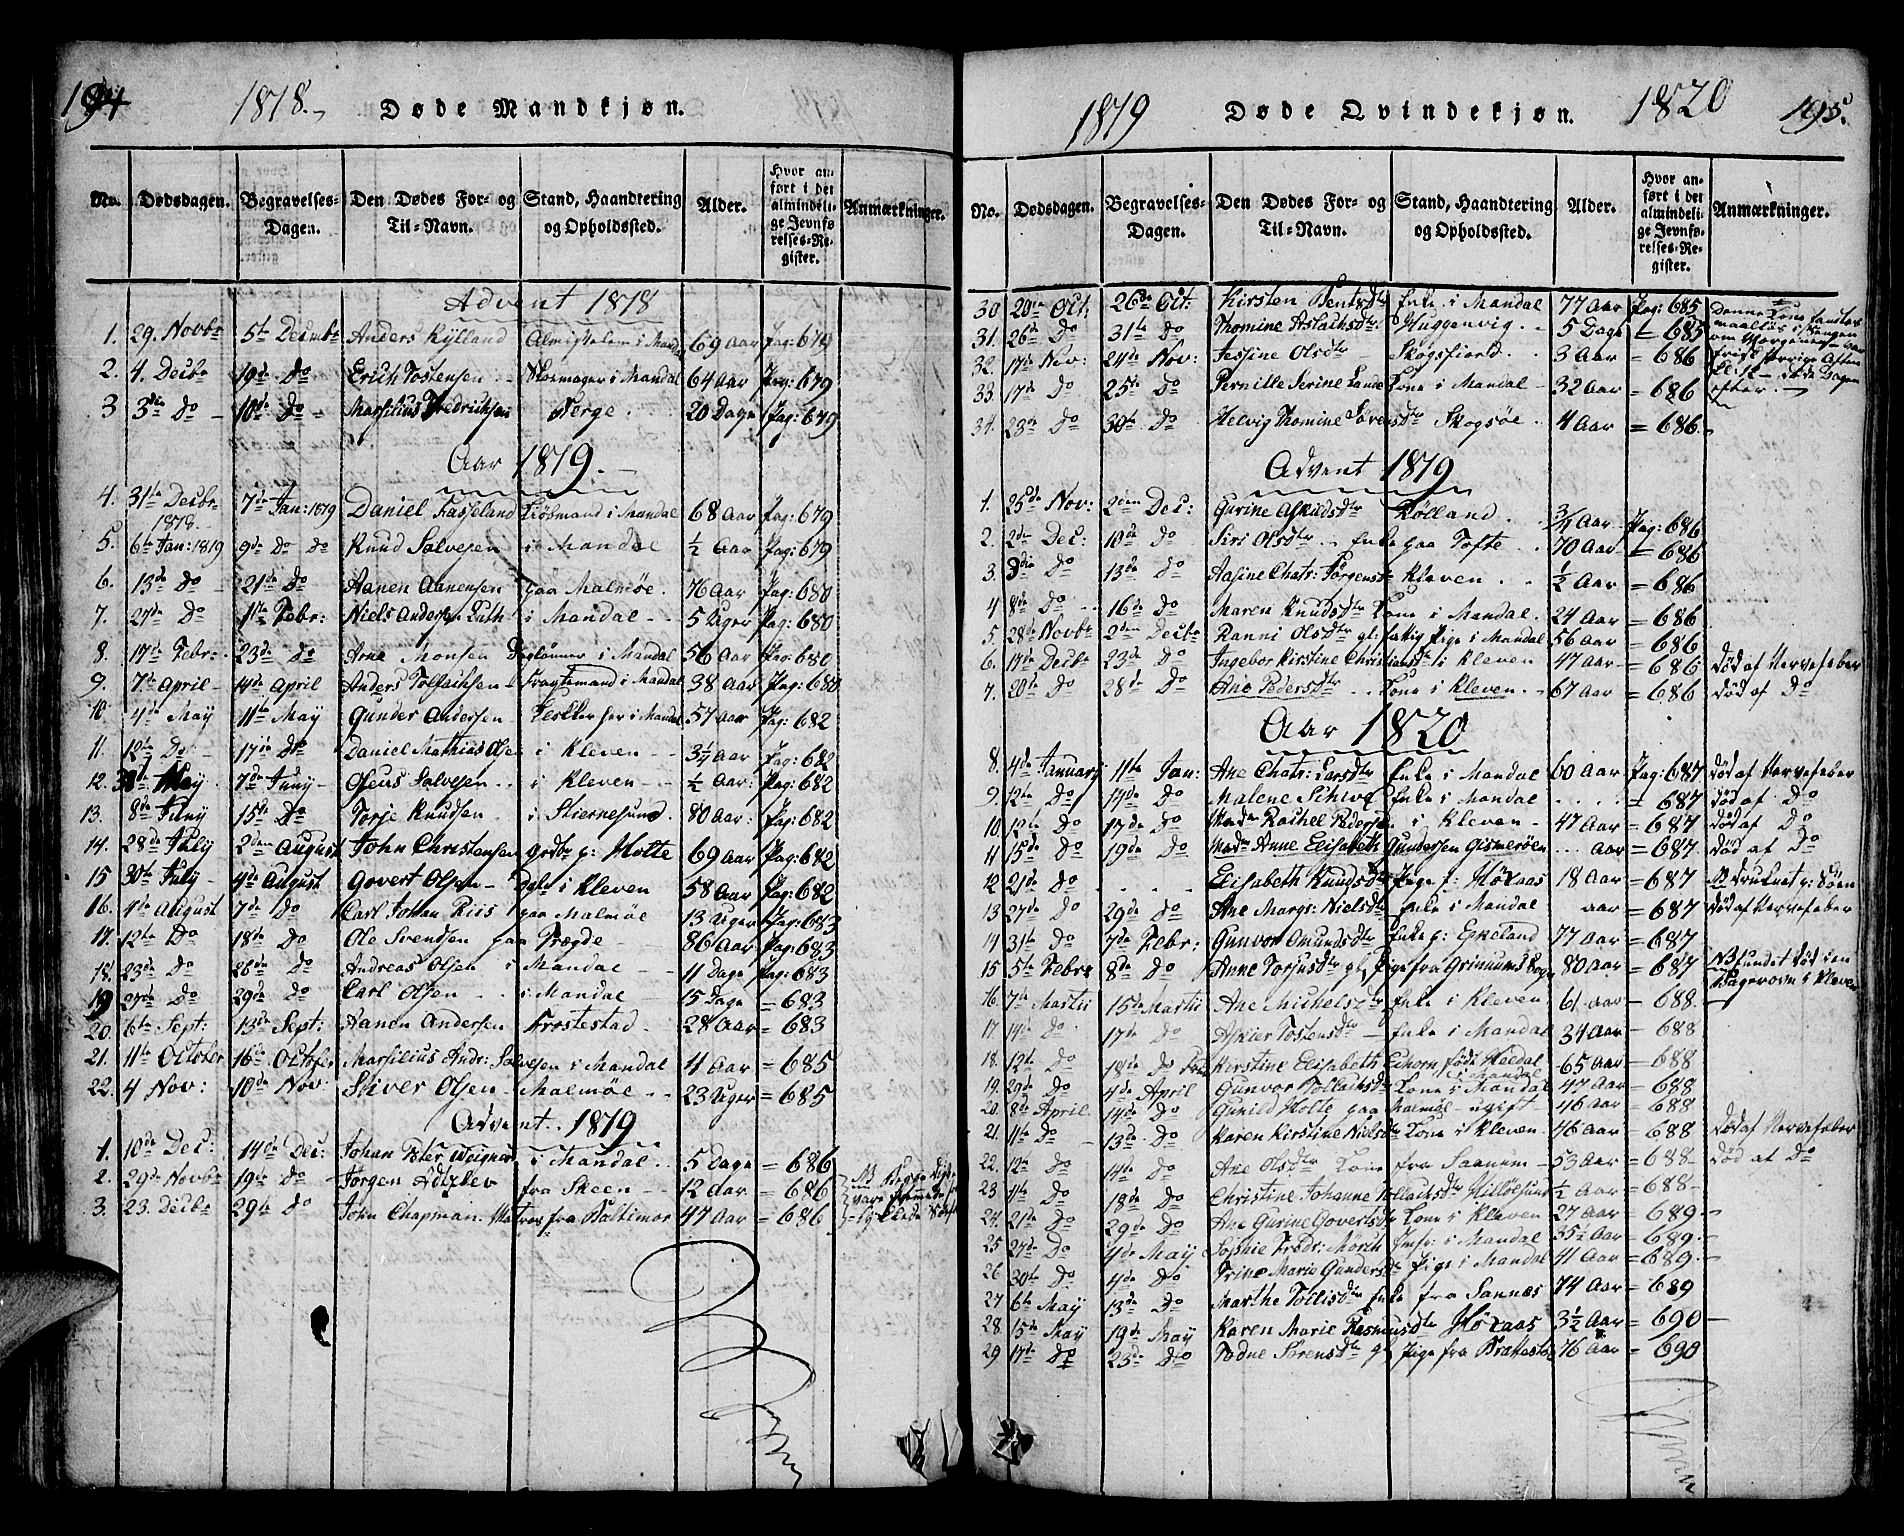 194
1818.
Døde Mandkjøn.
No. Dødsdagen. Begravelses-Dagen. Den Dødes For- og Til-Navn. Stand, Haandtering og Opholdssted. Alder. Hvor anført i det almindelige Jevnførelses-Register. Anmærkninger.
Advent 1818
1. 29. Novbr 5te Decmbr Anders Kÿlland i Mandal 69 Aar Pag: 679
2. 4. Decbr 19de Do Erich Tostensen Skomager i Mandal 64 Aar Pag: 679
3 3die Do 10de Do Marsilius Fredrichsen Norge. 20 Dage Pag: 679
Aar 1819.
4. 31te Decbr 1818. 7de Jan: 1819 Daniel Fasseland Kiøbmand i Mandal 68 Aar Pag: 679
5. 6te Jan: 1819 9de Do Do Knud Salvesen i Mandal ½ Aar Pag: 679
6. 13de Do 21de Do Aanen Aanensen paa Malmøe. 76 Aar Pag: 680
7. 27de Do 11te Febr: Niels Andersen Luth i Mandal 5 Uger Pag: 680
8. 17de Febr: 23de Do Arne Monsen Dagleønner i Mandal 56 Aar Pag: 680
9. 7de April 14de April Anders Tollachsen Fragtemand i Mandal 38 Aar Pag: 680
10 4de Maÿ 11te Maÿ Gunder Andersen i Mandal 57 Aar Pag: 682
11. 12te Do 17de Do Daniel Mathias Olsen i Kleven 3¼ Aar Pag: 682
12. 30te Maÿ 7de Junÿ Oleus Salvesen i Kleven ½ Aar: Pag: 682
13. 8de Junÿ 15de Do Torje Knudsen i Stiernesund 80 Aar: Pag: 682
14. 28de July 2den August John Christensen grdbr p: Holte 69 Aar Pag: 682
15 30te July 4de August Govert Olsen i Kleven 58 Aar Pag: 682
16. 1ste August 7de Do Carl Johan Riis paa Malmøe 13 Uger Pag: 683
17. 12te Do 18de Do Ole Svendsen paa Trægde 86 Aar Pag: 683
18. 23de Do 26de Do Andreas Olsen i Mandal 11 Dage Pag: 683
19 27de Do 29de Do Carl Olsen i Mandal 15 Dage = 683
20. 6te Sept: 13de Sept: Aanen Andersen Frostestad 28 Aar = 683
21. 11te October 16te October Marsilius Andr: Salvesen i Mandal 4 Aar = 685
22. 4 Nov: 10de Nov: Siver Olsen Malmøe 23 Uger = 685
Advent 1819
1. 10de Dec: 14de Dec: Johan Peter Weigner i Mandal 5 Dage = 686
2. 29de Novbr 19de Do Jørgen fra Skeen 12 Aar = 686
3. 23. Decbr 29de Do John Chapman Matros fra Baltimor 47 Aar = 686
1819
Døde Qvindekjøn.
1820
195.
No. Dødsdagen. Begravelses-Dagen. Den Dødes For- og Til-Navn. Stand, Haandtering og Opholdssted. Alder. Hvor anført i det almindelige Jevnførelses-Register. Anmærkninger.
30 20de Oct. 26de Oct: Kirsten Bentsdtr Enke i Mandal 77 Aar Pag: 685
31. 26de Do 31te Do Thomine Aslachsdtr Huggenvig 5 Dage = 685
32. 17de Nov: 24de Nov: Jessine Olsdtr Skogsfiord 3 Aar = 686
33 17de Do 25de Do Pernille Serine Lande Kone i Mandal 32 Aar = 686 Denne Kone fandtes maalløs i Sengen om Morgenen
34. 23de Do 30te Do Helvig Thomine Sørensdtr Skogsøe 4 Aar = 686
Advent 1819
1. 25de Nov: 2den Dec: Gurine Askildsdtr Kølland ¾ Aar Pag: 686
2. 2de Dec: 10de Do Siri Olsdtr Enke paa Tofte 70 Aar = 686
3. 3die Do 13de Do Aasine Chatr: Jørgensdtr Kleven ½ Aar = 686
4 8de Do 16de Do Maren Knudsdtr Kone i Mandal 24 Aar = 686
5. 28de Novbr 2den Decbr Ranni Olsdtr gl: fattig Pige i Mandal 56 Aar = 686
6. 17de Decbr 23de Do Ingebor Kirstine Christiansdtr i Kleven 47 Aar = 686 Død af Nervefeber
7. 20de Do 28de Do Ane Pedersdtr Kone i Kleven 67 Aar = 686 Død af Do
Aar 1820
8. 4de January 11te Jan: Ane Chatr: Larsdtr Enke i Mandal 60 Aar Pag: 687 Død af Nervefeber
9. 12te Do 14de Do Malene Enke i Mandal = 687 Død af Do
10 12te Do 17de Do Madm Rachel Pedersen i Kleven 47 Aar = 687 Død af Do
11 15de Do 19de Do Madm Anne Elisabeth Gundersen Gismerøen Aar = 687 Død af Do
12 21de Do Elisabeth Knudsdtr Pige p: Høxaas 18 Aar = 687 NB druknet p: Søen
13 27de Do 29de Do Ane Margr: Nielsdtr Enke i Mandal Aar = 687 Død af Nervefeber
14 31te Do 7de Febr: Gunvor Omundsdtr Enke p: Egeland 77 Aar = 687
15 5te Febr 8de Do Anne Torjusdtr gl: Pige fra Grimums Sogn 80 Aar = 687 NB fundet død i en Bageroovn i Kleven
16. 7de Martii 15de Martii Ane Michelsdtr Enke i Kleven 61 Aar = 688
17 14de Do 17de Do Askier Tostensdtr Enke i Mandal 34 Aar = 688
18. 12te Do 18de Do Kirstine Elisabeth Eihorn fød Heedal i Mandal 65 Aar = 688
19. 29de Do 4de April Gunvor Tollachsdtr Kone i Mandal 47 Aar = 688
20. 8de April 14de Do Gunild Holte paa Malmøe ugift 46 Aar = 688
21. 11te Do 13de Do Karen Kirstine Nielsdtr Kone i Kleven 46 Aar = 688 Død af Nervefeber
22. 12te Do 14de Do Ane Olsdtr Kone fra Saanum 53 Aar = 688 Død af Do
23 11te Do 18de Do Christine Johanne Tollachsdtr Hilløesund ½ Aar = 688
24. 21de Do 29de Do Ane Gurine Govertsdtr Kone i Kleven 27 Aar = 689
25 27de Do 4de Maÿ Sophie Fredr: Mørch Jmfr: i Mandal 35½ Aar = 689
26 30te Do 4de Do Trine Marie Gundersdtr Pige i Mandal 41 Aar = 689
27 6te Maÿ 13de Do Marthe Tollisdtr Enke fra Sannæs 74 Aar = 689
28. 15de Maÿ 19de Maÿ Karen Marie Rasmusdtr Høxaas 3½ Aar = 690
29 17de Do 23de Do Todne Sørensdtr gl Pige fra Brattestø 76 Aar = 690